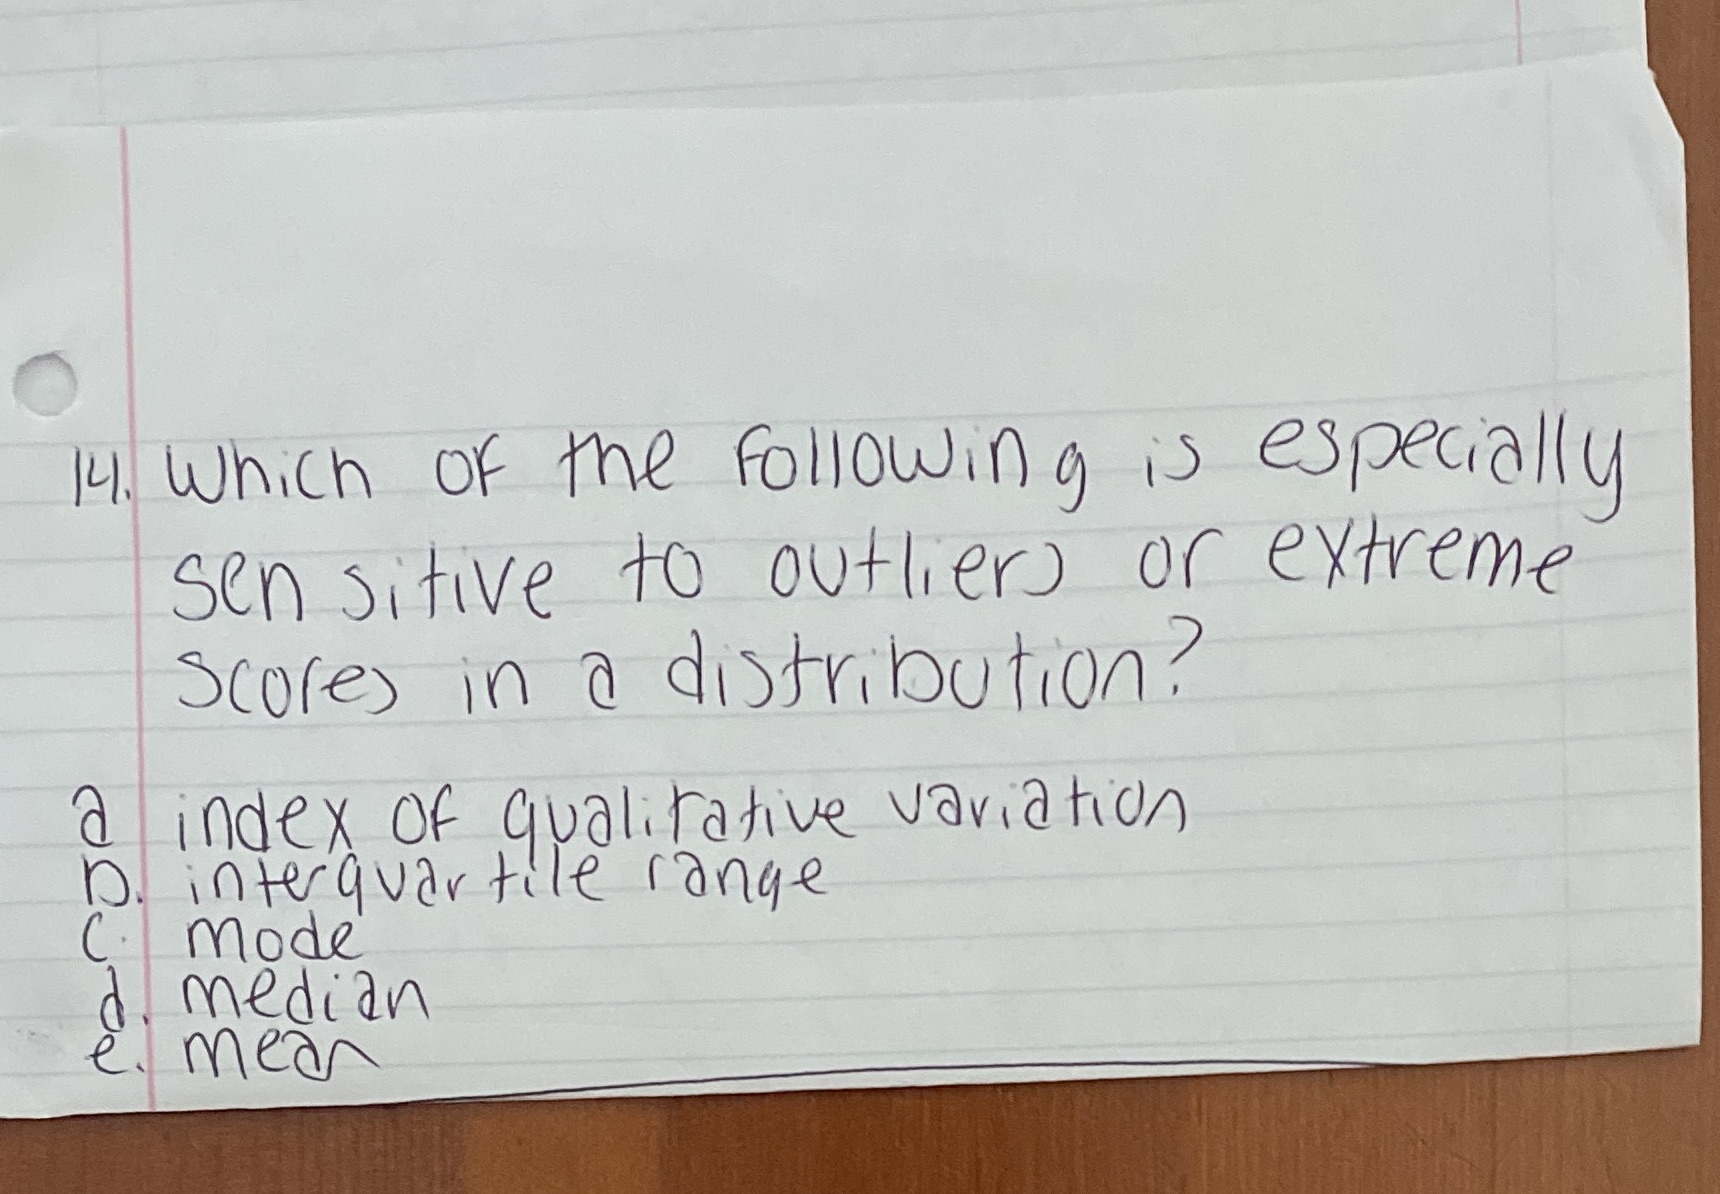 14. Which of the following is especially
sensitive to outliers or extreme
scores in a distribution?
a index of qualitative variation
b. interquartile range
c. mode
d. median
e. mean